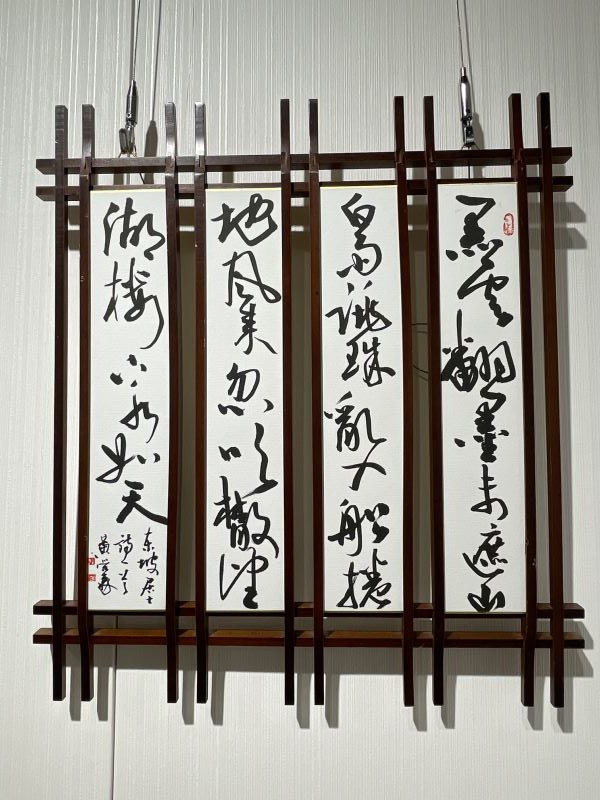 黑雲翻墨未遮山
白雨跳珠亂入船捲
地風来忽吹散望
湖楼下水如天
东坡居士
詩一首
黄